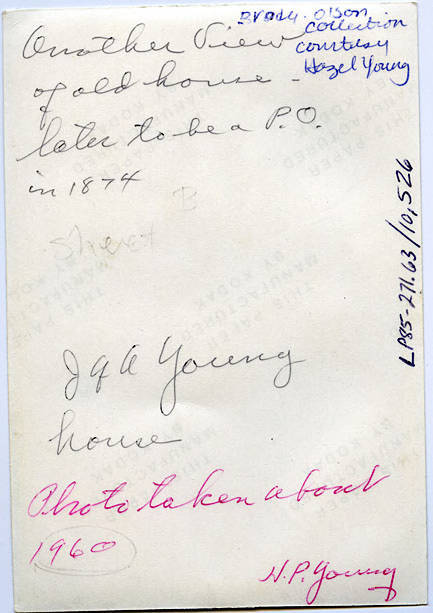 Brady-Olson
Collection
courtesy
Hazel Young
Another View
of old house -
later to be a P.O.
in 1874
B
Street
LP85-271.63/10,526
THIS PAPER
MANUFACTURED
BY KODAK
J & A Young
house
Photo taken about
1960
H.P. Young